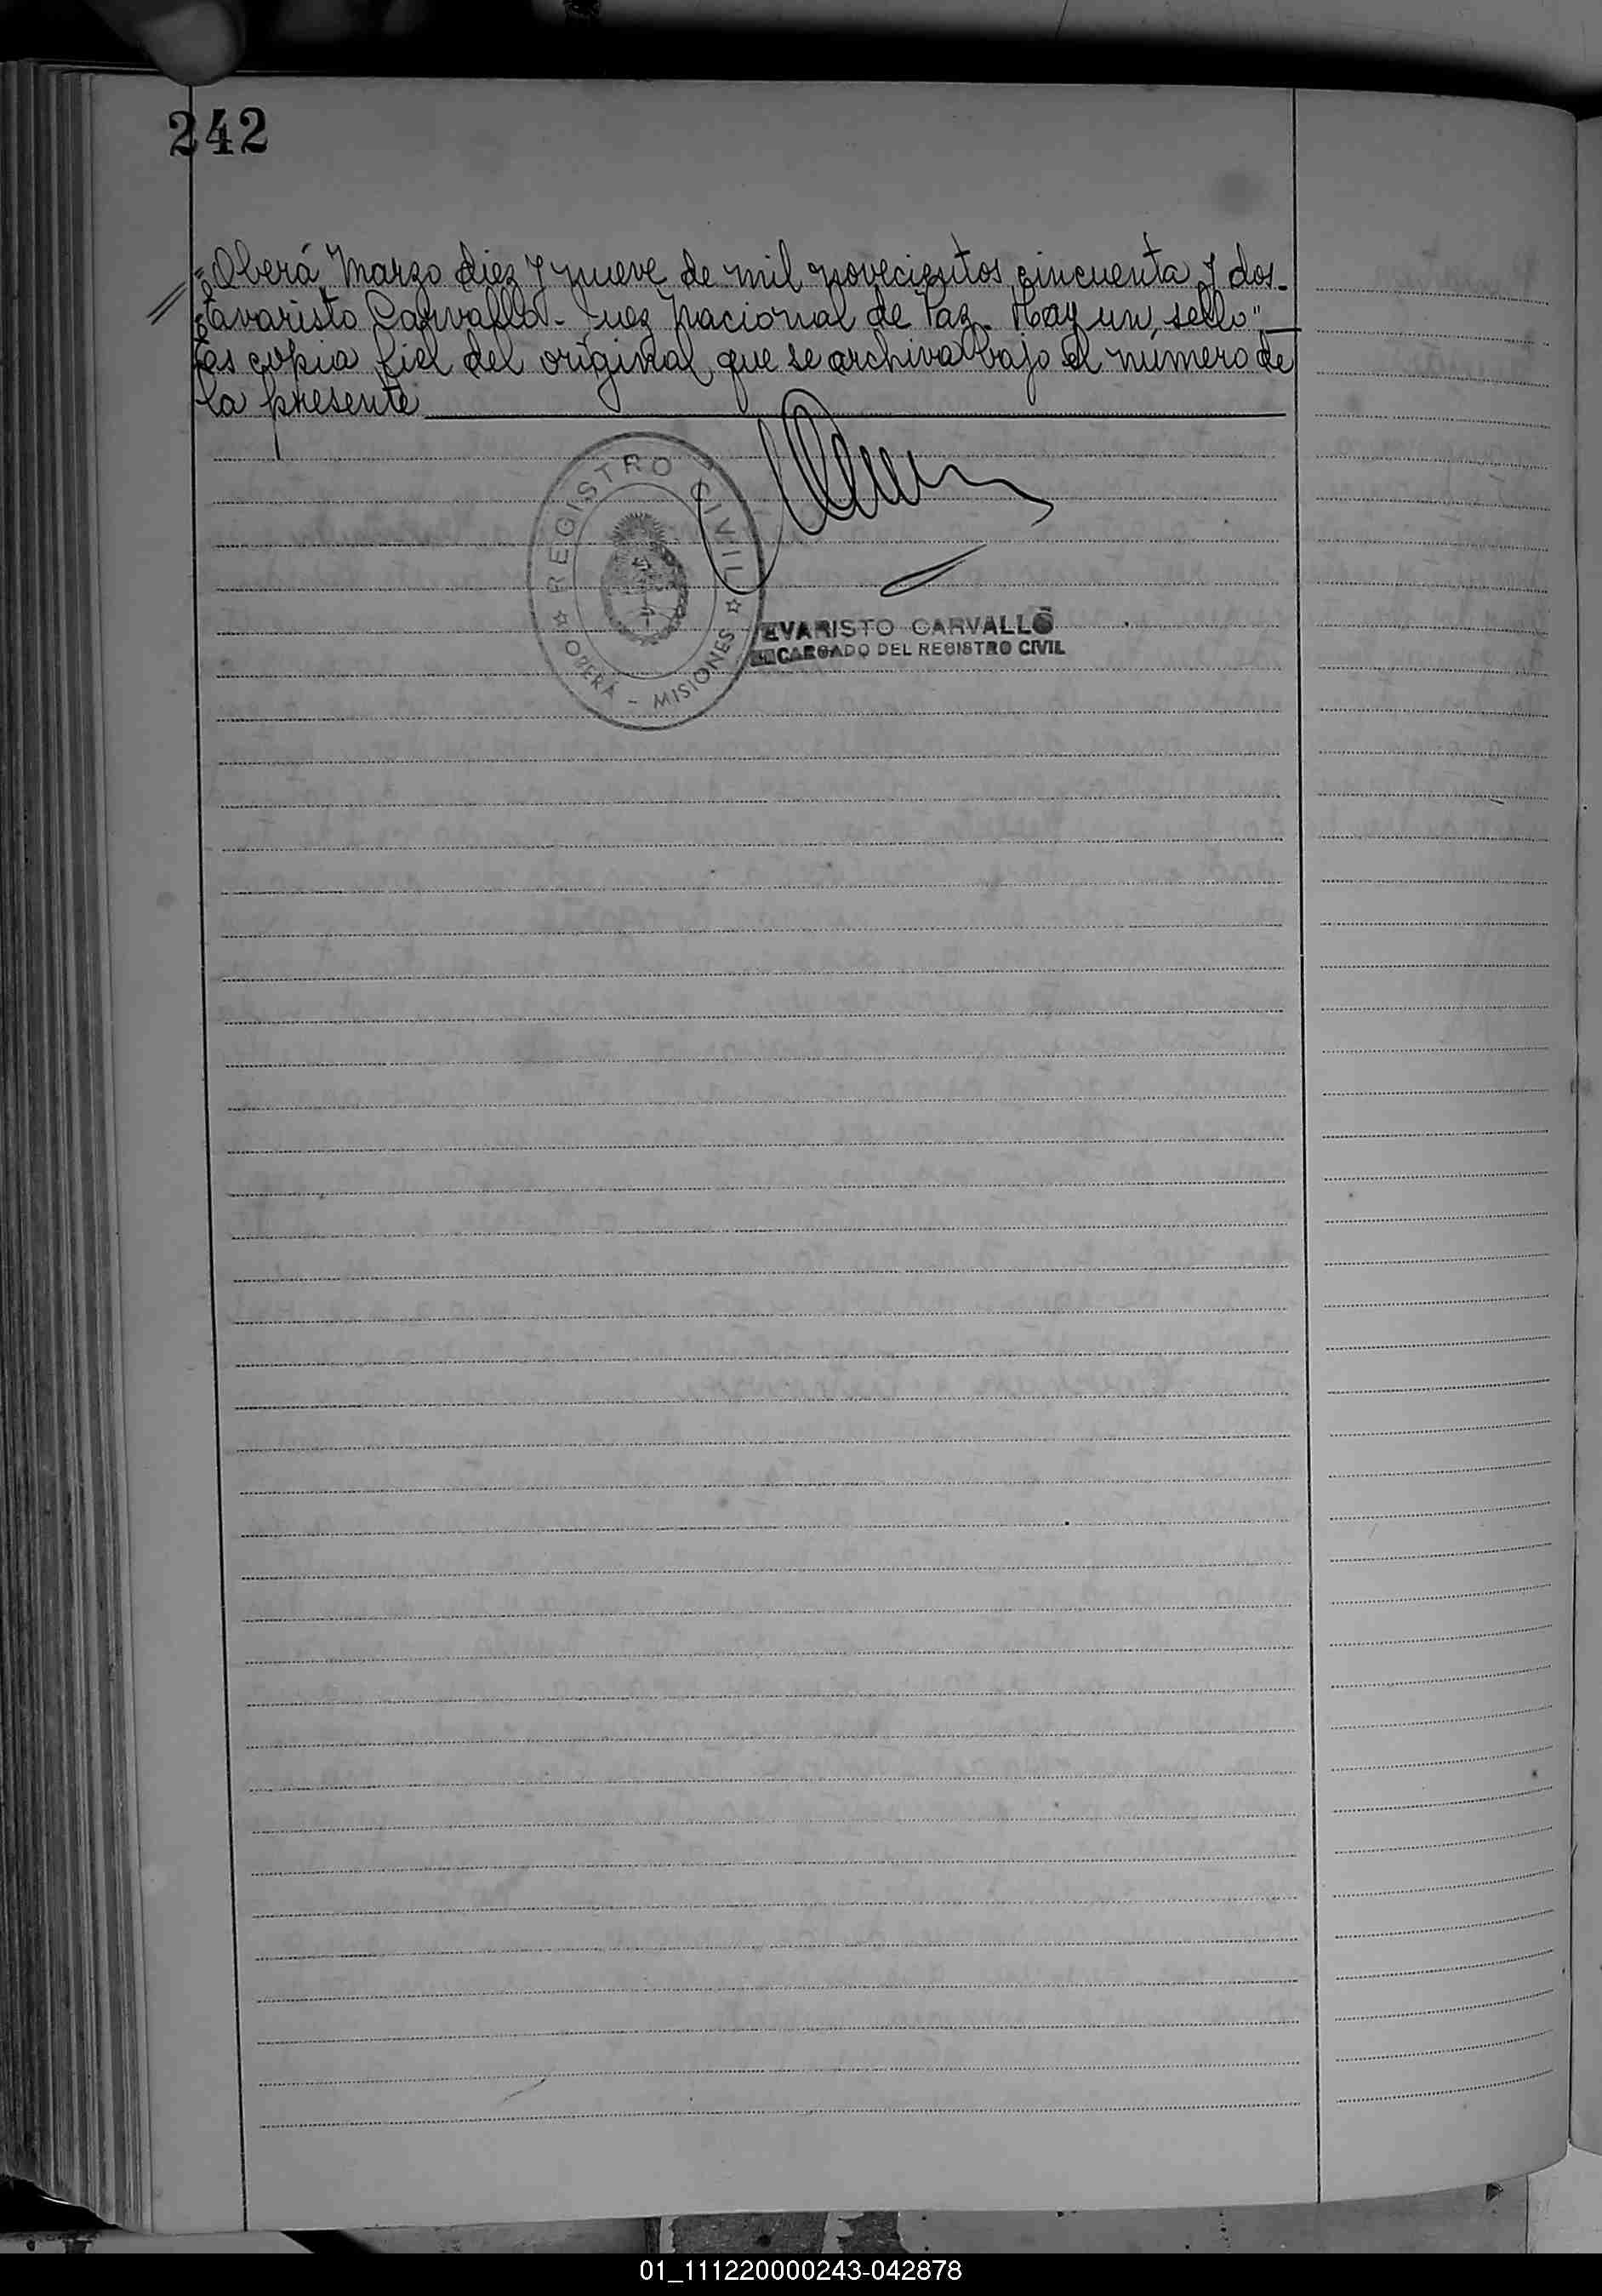 242
"Oberá, Marzo diez y nueve de mil novecientos cincuenta y dos.
// Evaristo Carvallo - Juez Nacional de Paz. Hay un sello"
Es copia fiel del original que se archiva bajo el número de
la presente
REGISTRO CIVIL
OBERÁ - MISIONES
EVARISTO CARVALLO
ENCARGADO DEL REGISTRO CIVIL
01_111220000243-042878